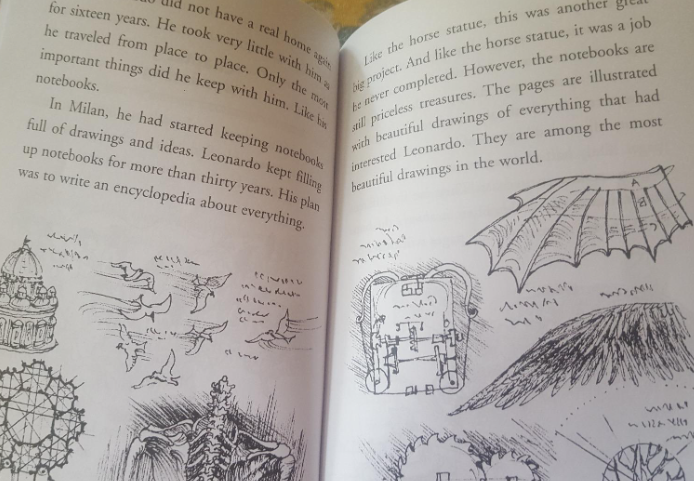 did not have a real home again
for sixteen years. He took very little with him as
he traveled from place to place. Only the most
important things did he keep with him. Like his
notebooks.
In Milan, he had started keeping notebooks
full of drawings and ideas. Leonardo kept filling
up notebooks for more than thirty years. His plan
was to write an encyclopedia about everything.
Like the horse statue, this was another great
big project. And like the horse statue, it was a job
he never completed. However, the notebooks are
still priceless treasures. The pages are illustrated
with beautiful drawings of everything that had
interested Leonardo. They are among the most
beautiful drawings in the world.
A